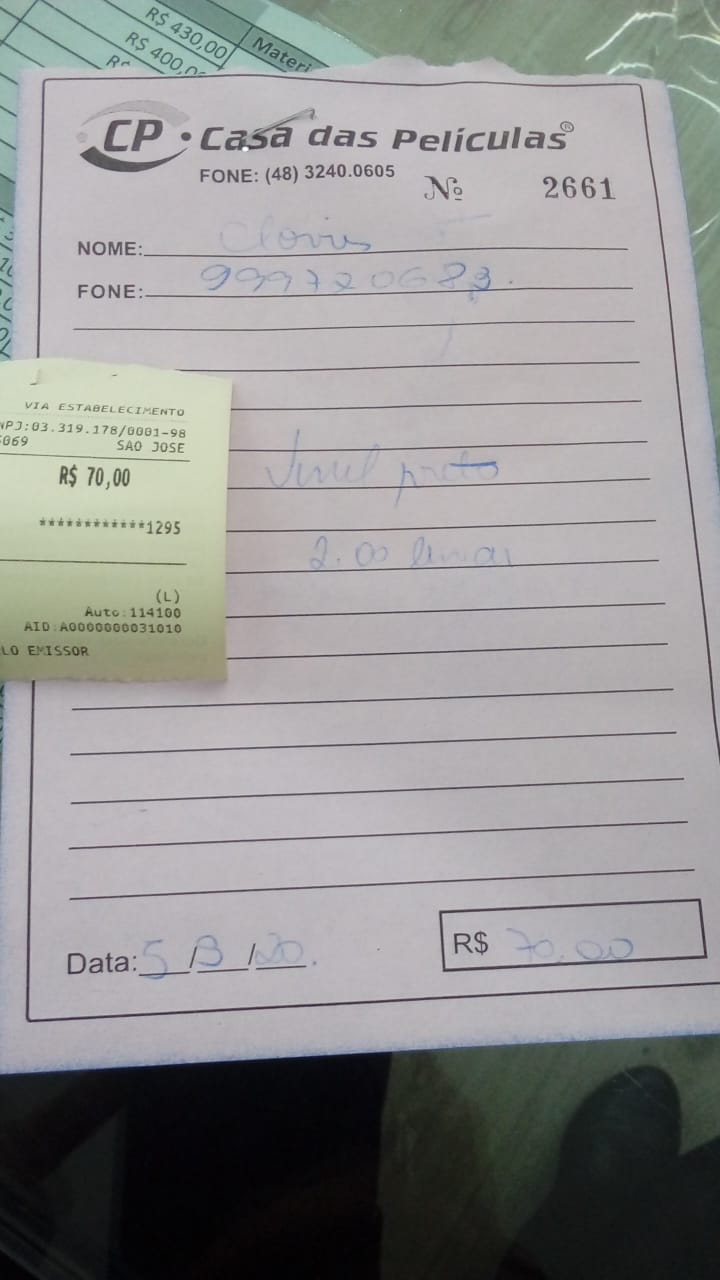 R$ 430,00
Materi
R$ 400,0
CP • Casa das Películas®
FONE: (48) 3240.0605
Nº 2661
NOME: Clovis
FONE: 999720683.
VIA ESTABELECIMENTO
NPJ:03.319.178/0001-98
5069 SAO JOSE
R$ 70,00
************1295
(L)
Auto:114100
AID:A0000000031010
LO EMISSOR
Vinil preto
2.00 linear
Data: 5/3/20.
R$ 70,00